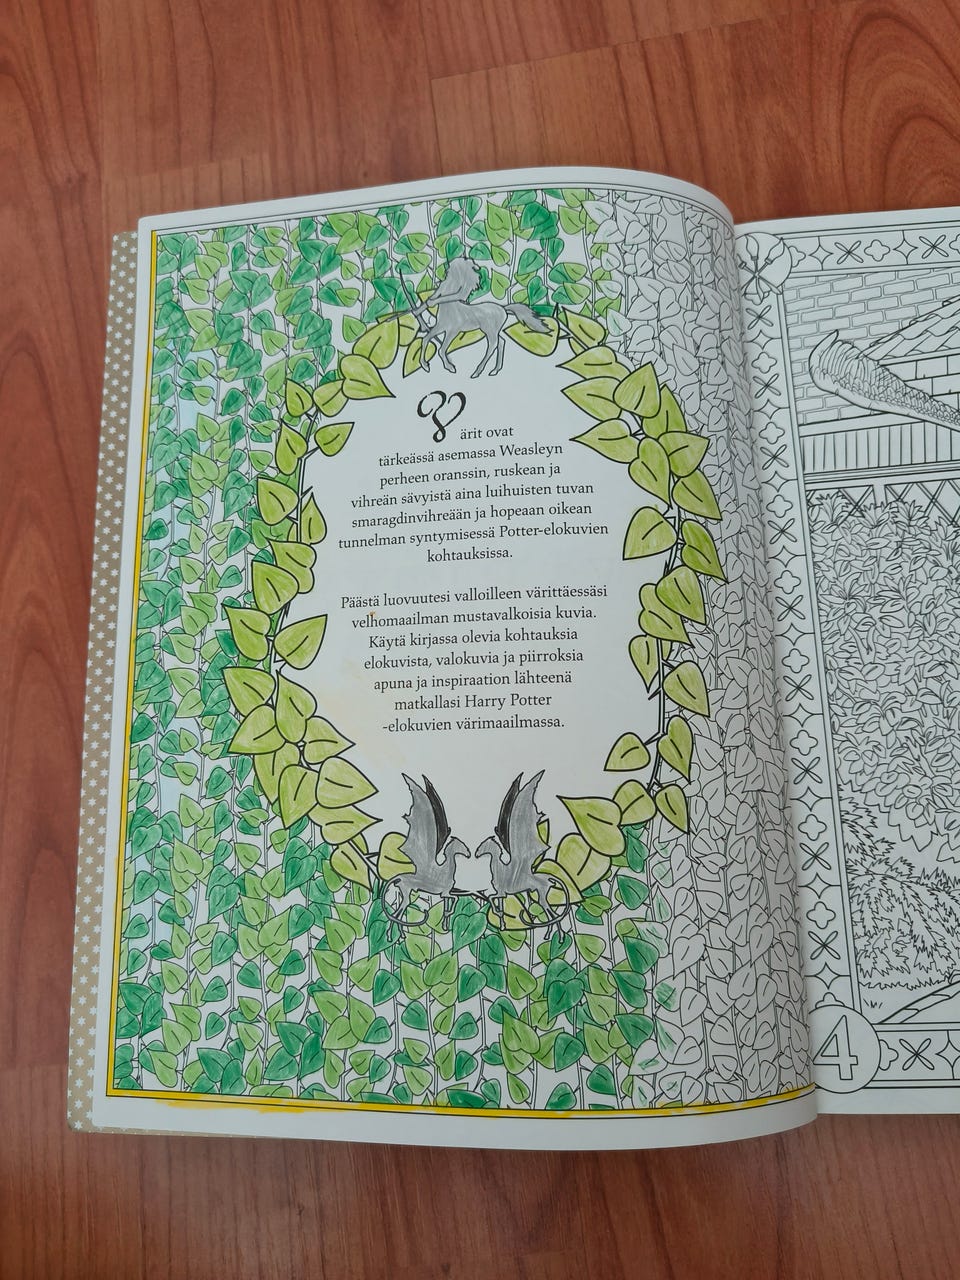 Värit ovat
tärkeässä asemassa Weasleyn
perheen oranssin, ruskean ja
vihreän sävyistä aina luihuisten tuvan
smaragdinvihreään ja hopeaan oikean
tunnelman syntymisessä Potter-elokuvien
kohtauksissa.
Päästä luovuutesi valloilleen värittäessäsi
velhomaailman mustavalkoisia kuvia.
Käytä kirjassa olevia kohtauksia
elokuvista, valokuvia ja piirroksia
apuna ja inspiraation lähteenä
matkallasi Harry Potter
-elokuvien värimaailmassa.
4